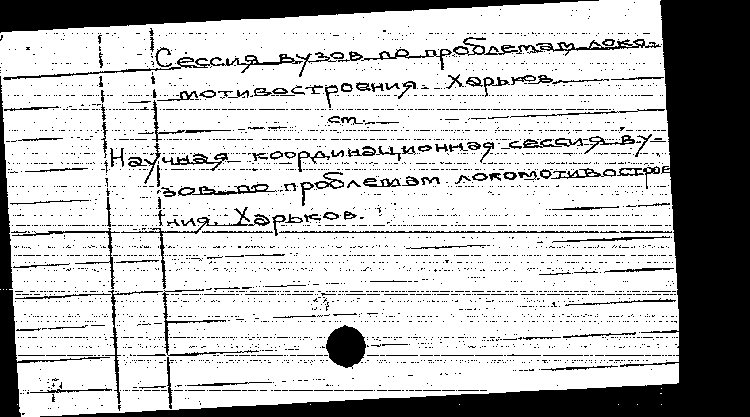 Сессия вузов по проблемам локо-
мотивостроения. Харьков.
см.
Научная координационная сессия ву-
зов по проблемам локомотивострое
ния. Харьков.